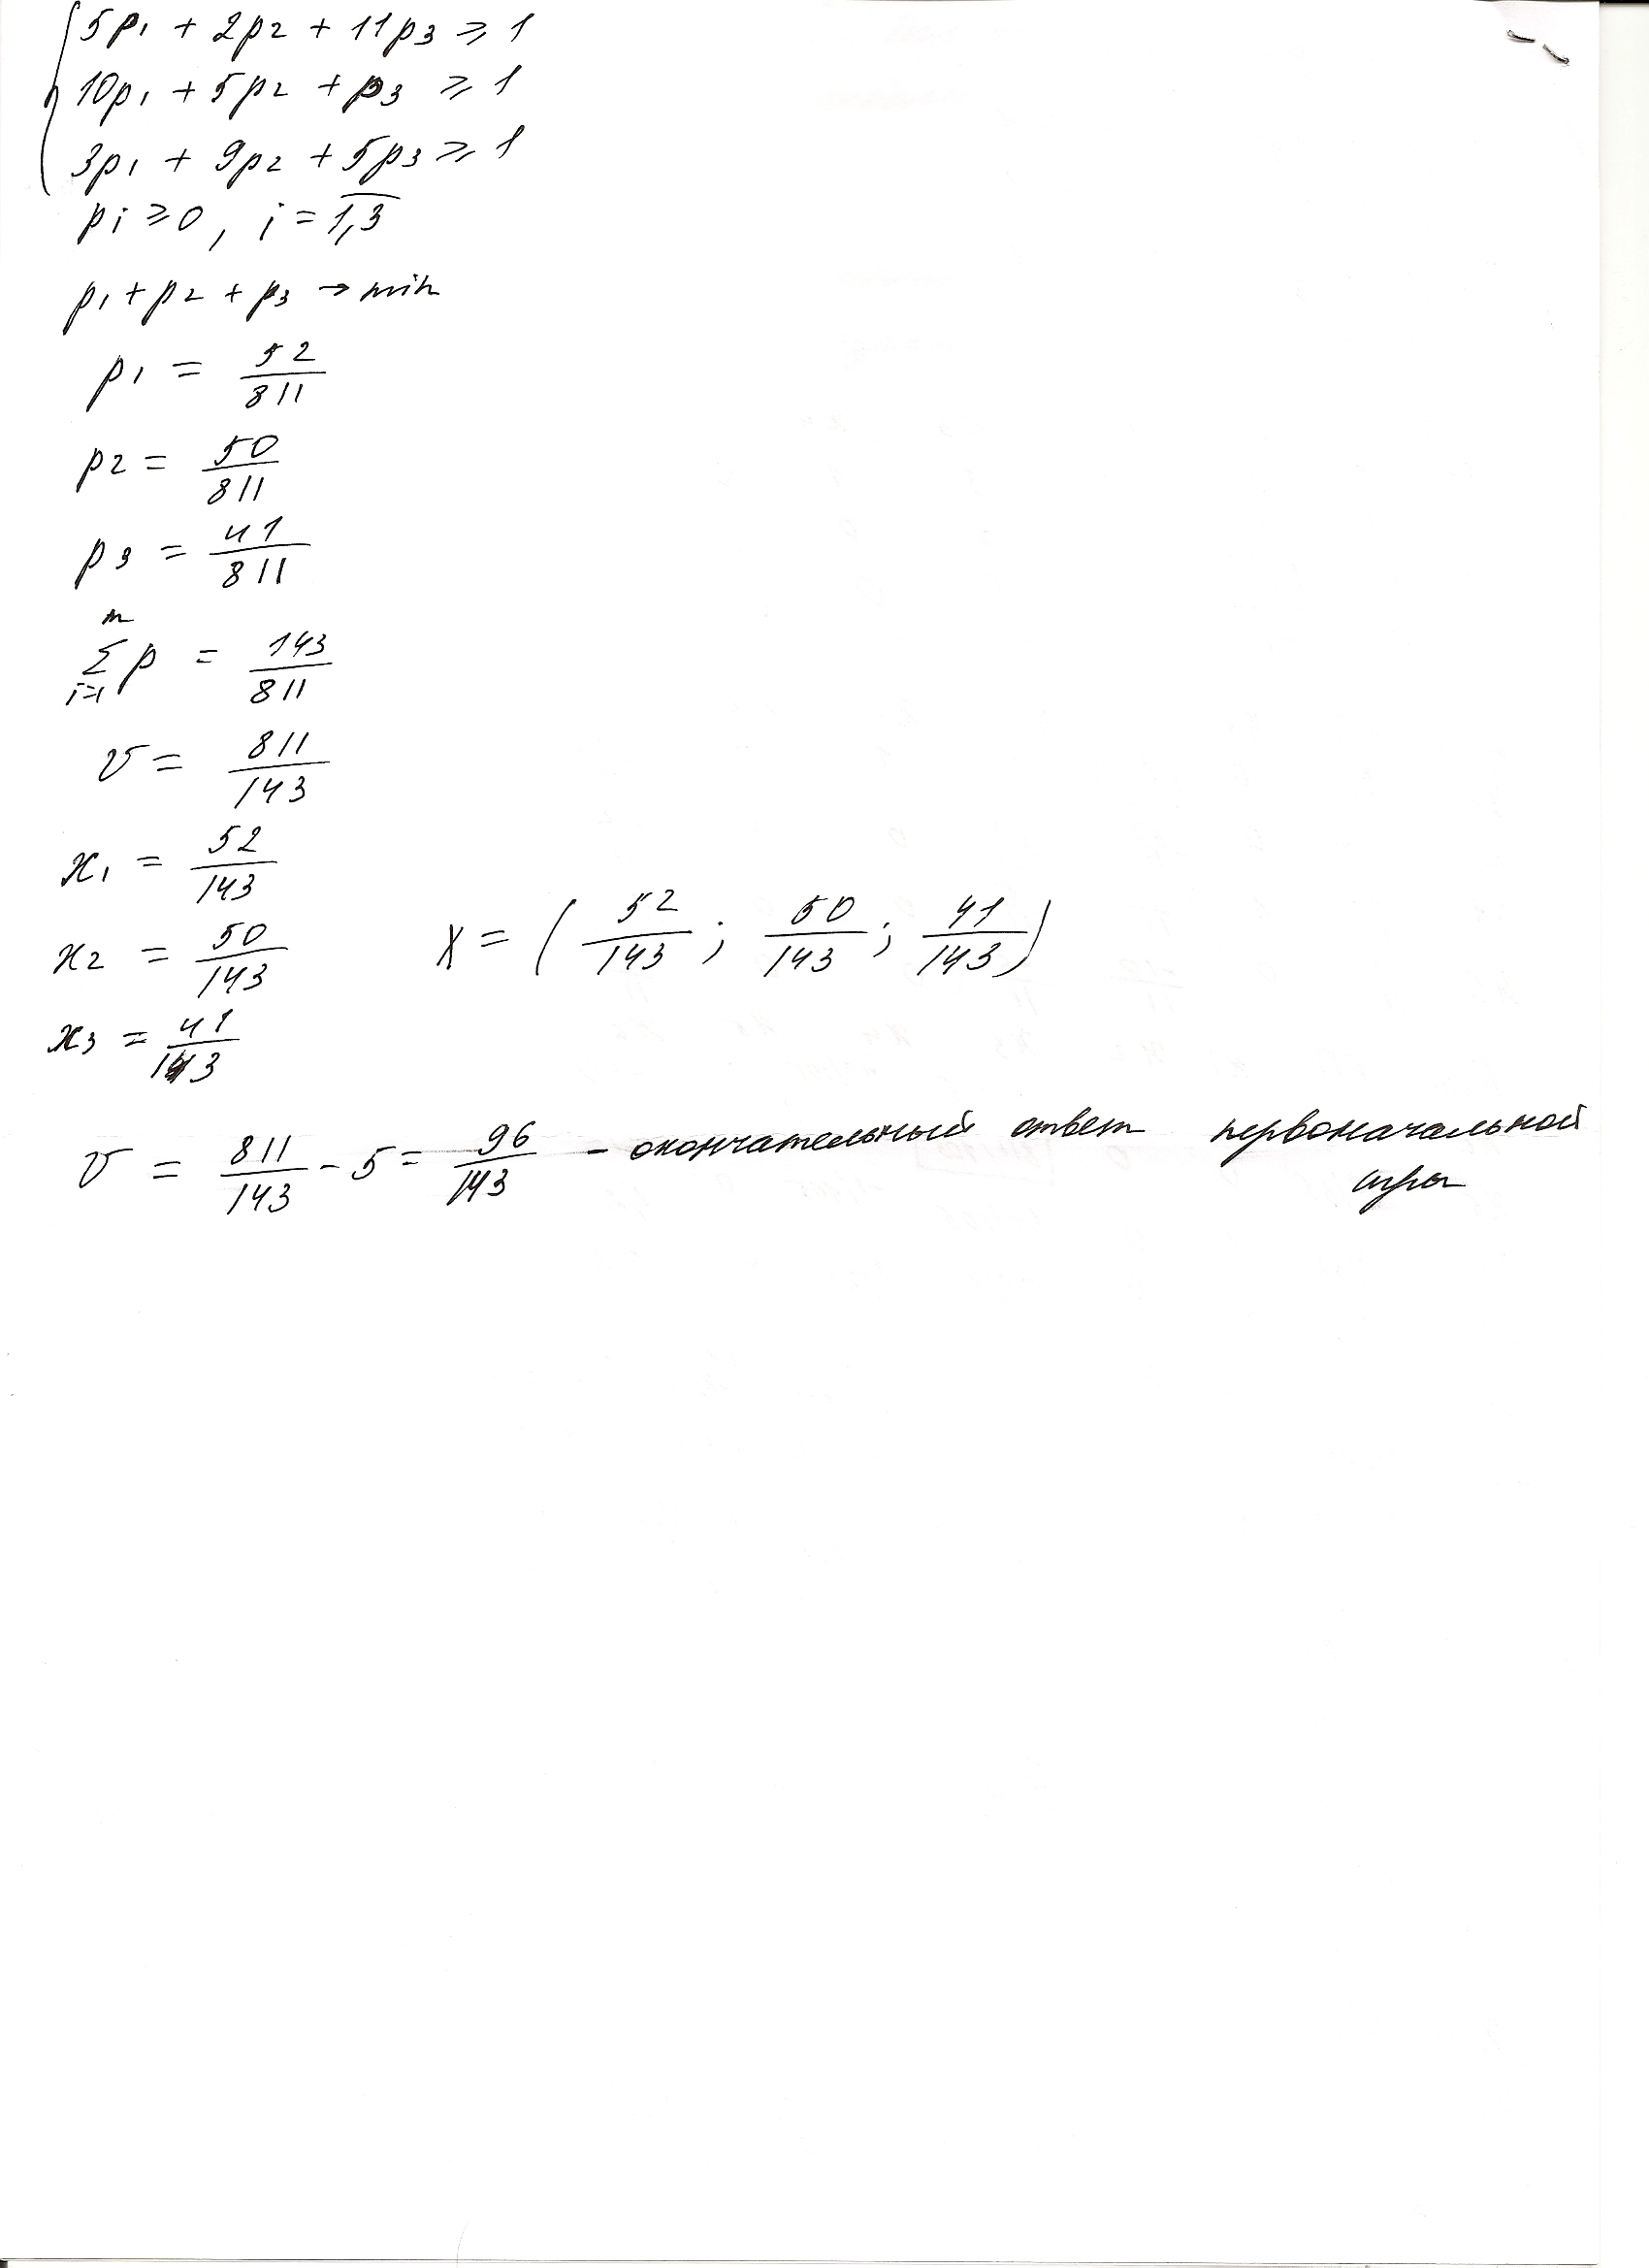 5p₁ + 2p₂ + 11p₃ ⩾ 1
10p₁ + 5p₂ + p₃ ⩾ 1
3p₁ + 9p₂ + 5p₃ ⩾ 1
pi ⩾ 0, i = 1,3
p₁ + p₂ + p₃ → min
p₁ = 52/811
p₂ = 50/811
p₃ = 41/811
m
Σ p = 143/811
i=1
v = 811/143
x₁ = 52/143
x₂ = 50/143
X = (52/143; 50/143; 41/143)
x₃ = 41/143
v = 811/143 - 5 = 96/143 - окончательный ответ первоначальной
игры